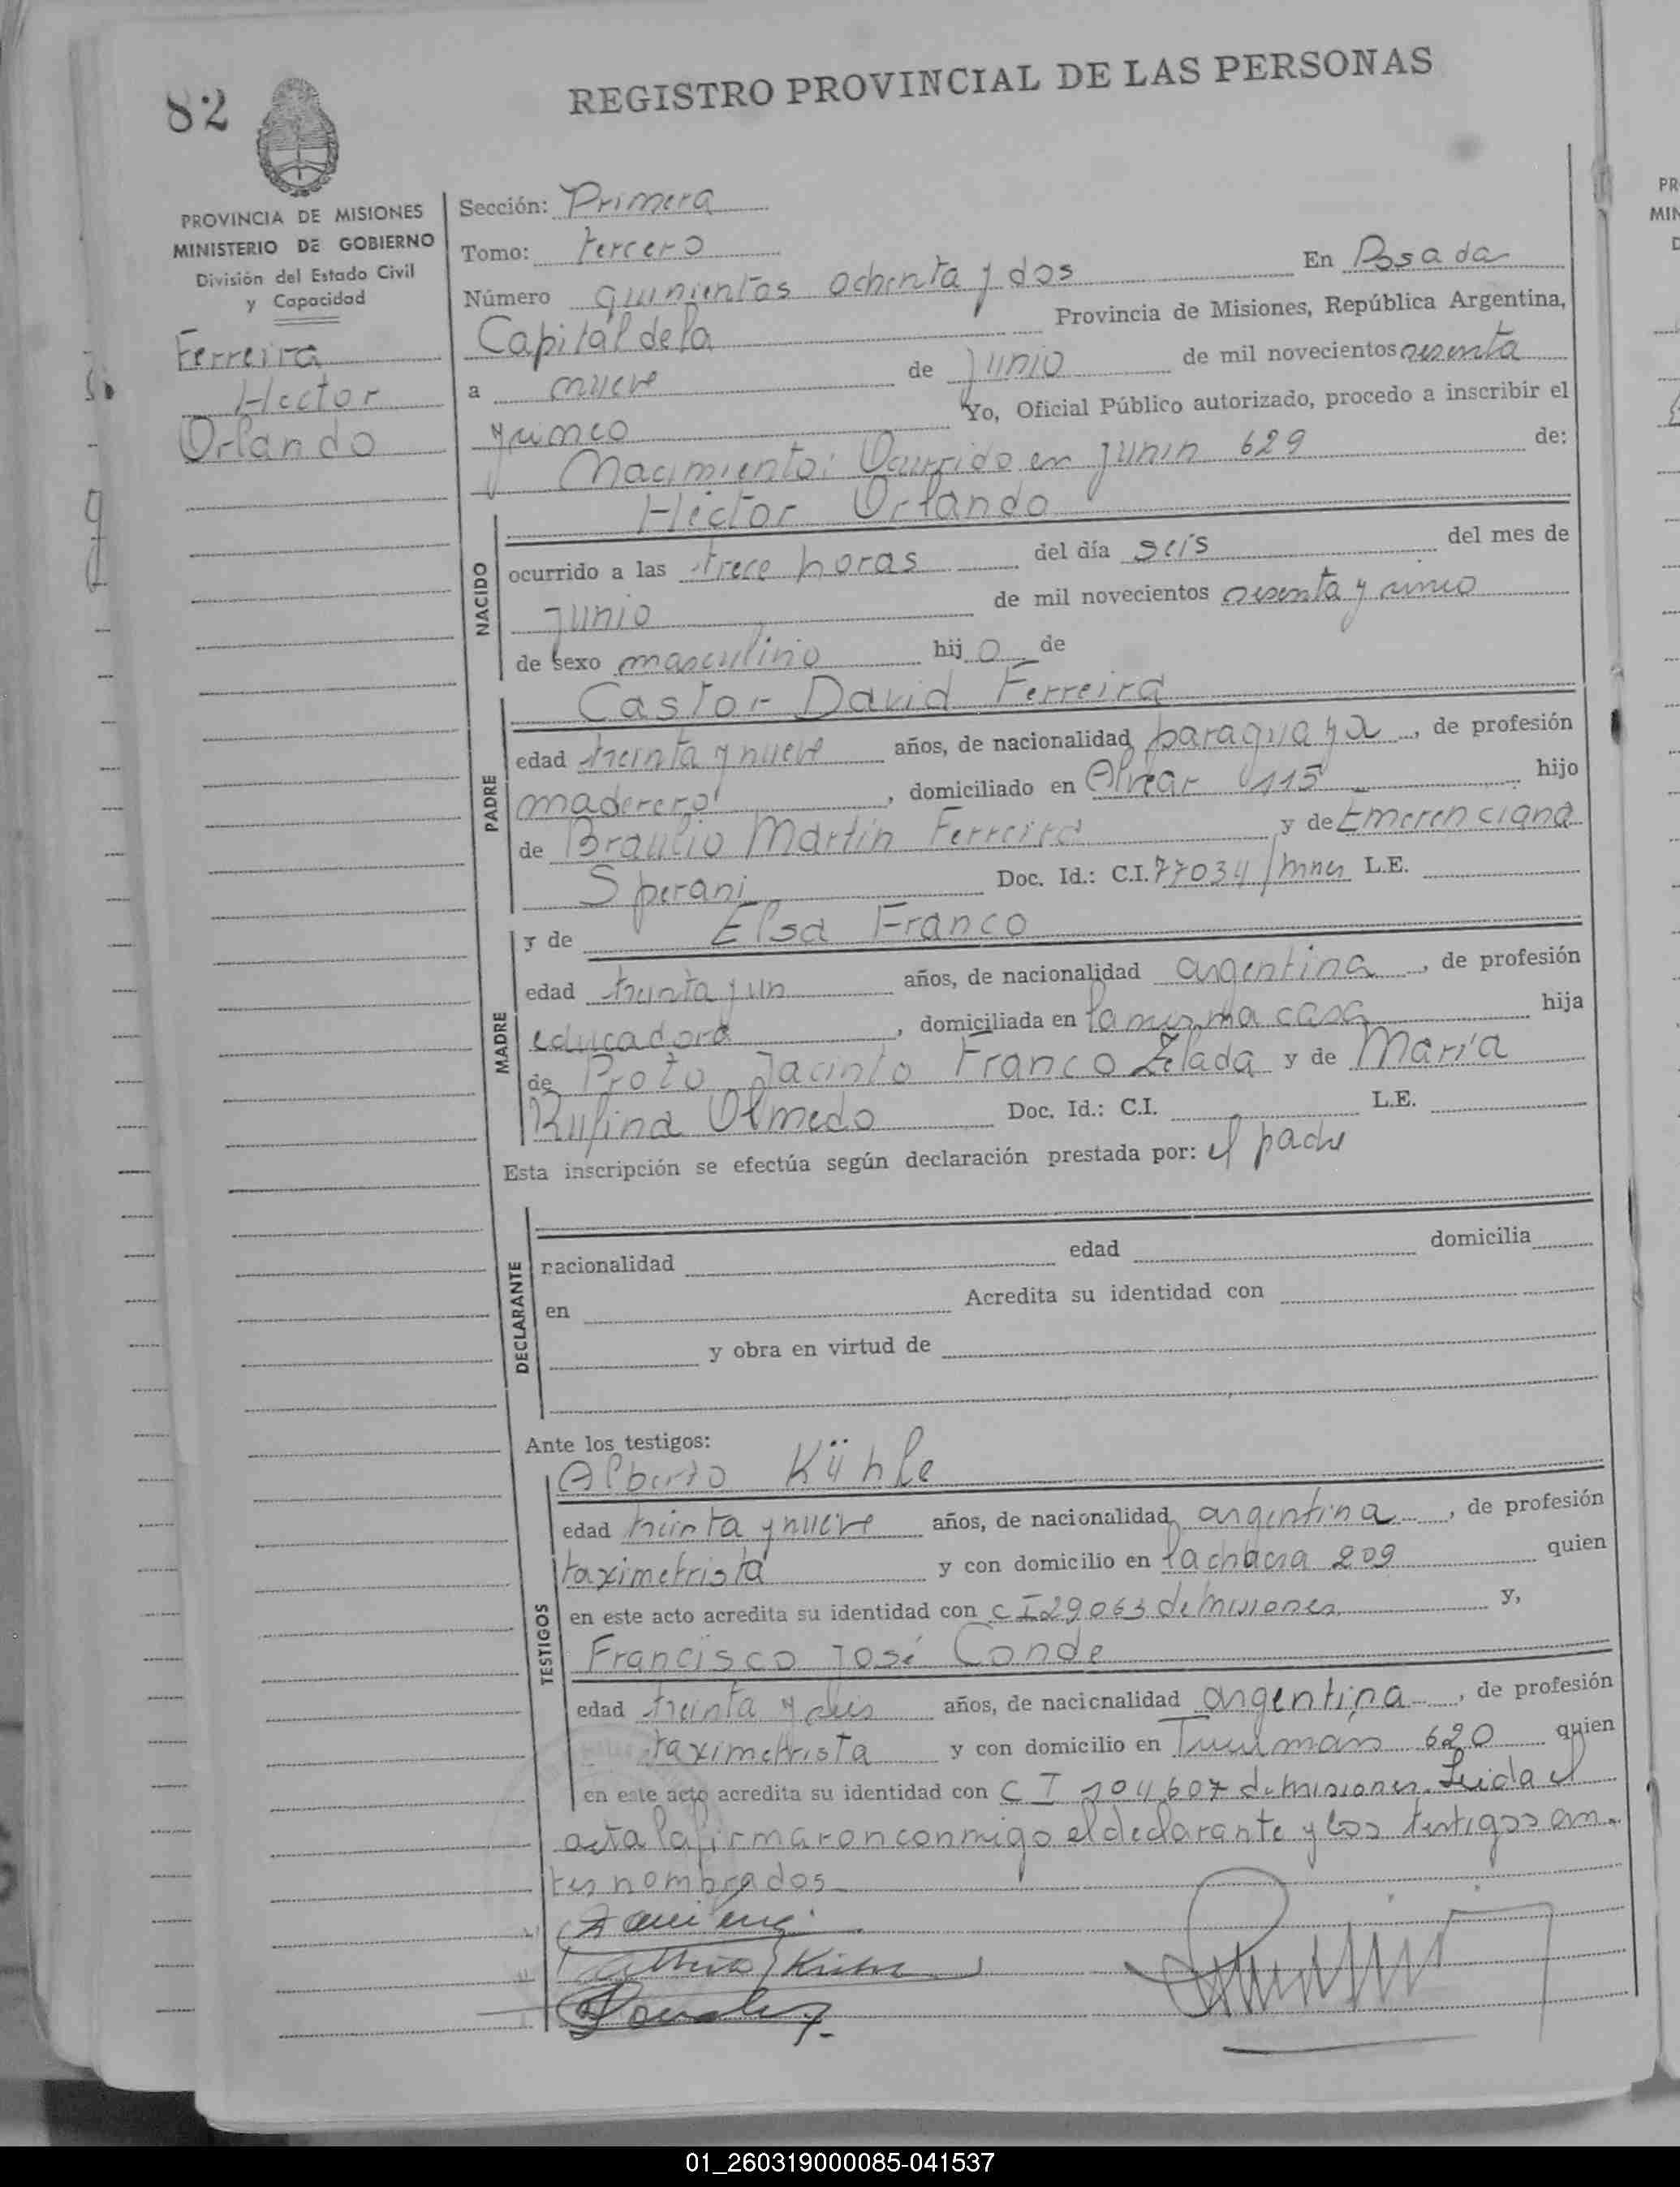 82
REGISTRO PROVINCIAL DE LAS PERSONAS
PROVINCIA DE MISIONES
MINISTERIO DE GOBIERNO
División del Estado Civil
y Capacidad
Ferreira
Hector
Orlando
Sección: Primera
Tomo: tercero
Número quinientos ochenta y dos En Posada
Capital de la Provincia de Misiones, República Argentina,
a nueve de junio de mil novecientos sesenta
y cinco Yo, Oficial Público autorizado, procedo a inscribir el
Nacimiento: Ocurrido en Junin 629 de:
Héctor Orlando
NACIDO
ocurrido a las trece horas del día seis del mes de
junio de mil novecientos sesenta y cinco
de sexo masculino hij o de
Castor David Ferreira
PADRE
edad treinta y nueve años, de nacionalidad paraguaya, de profesión
maderero, domiciliado en Alvear 1115 hijo
de Braulio Martín Ferreira y de Emerenciana
Sperani Doc. Id.: C.I. 77034/mnes L.E.
y de Elsa Franco
MADRE
edad treinta y un años, de nacionalidad argentina, de profesión
educadora, domiciliada en la misma casa hija
de Proto Jacinto Franco Zelada y de María
Rufina Olmedo Doc. Id.: C.I. L.E.
Esta inscripción se efectúa según declaración prestada por: el padre
DECLARANTE
nacionalidad edad domicilia
en Acredita su identidad con
y obra en virtud de
Ante los testigos:
Alberto Kühle
TESTIGOS
edad treinta y nueve años, de nacionalidad argentina, de profesión
taximetrista y con domicilio en la chacra 209 quien
en este acto acredita su identidad con C I 29063 de misiones y,
Francisco José Conde
edad treinta y seis años, de nacionalidad argentina, de profesión
taximetrista y con domicilio en Tucumán 620 quien
en este acto acredita su identidad con C I 104.607 de misiones. Leida el
acta la firmaron conmigo el declarante y los testigos an-
tes nombrados
01_260319000085-041537